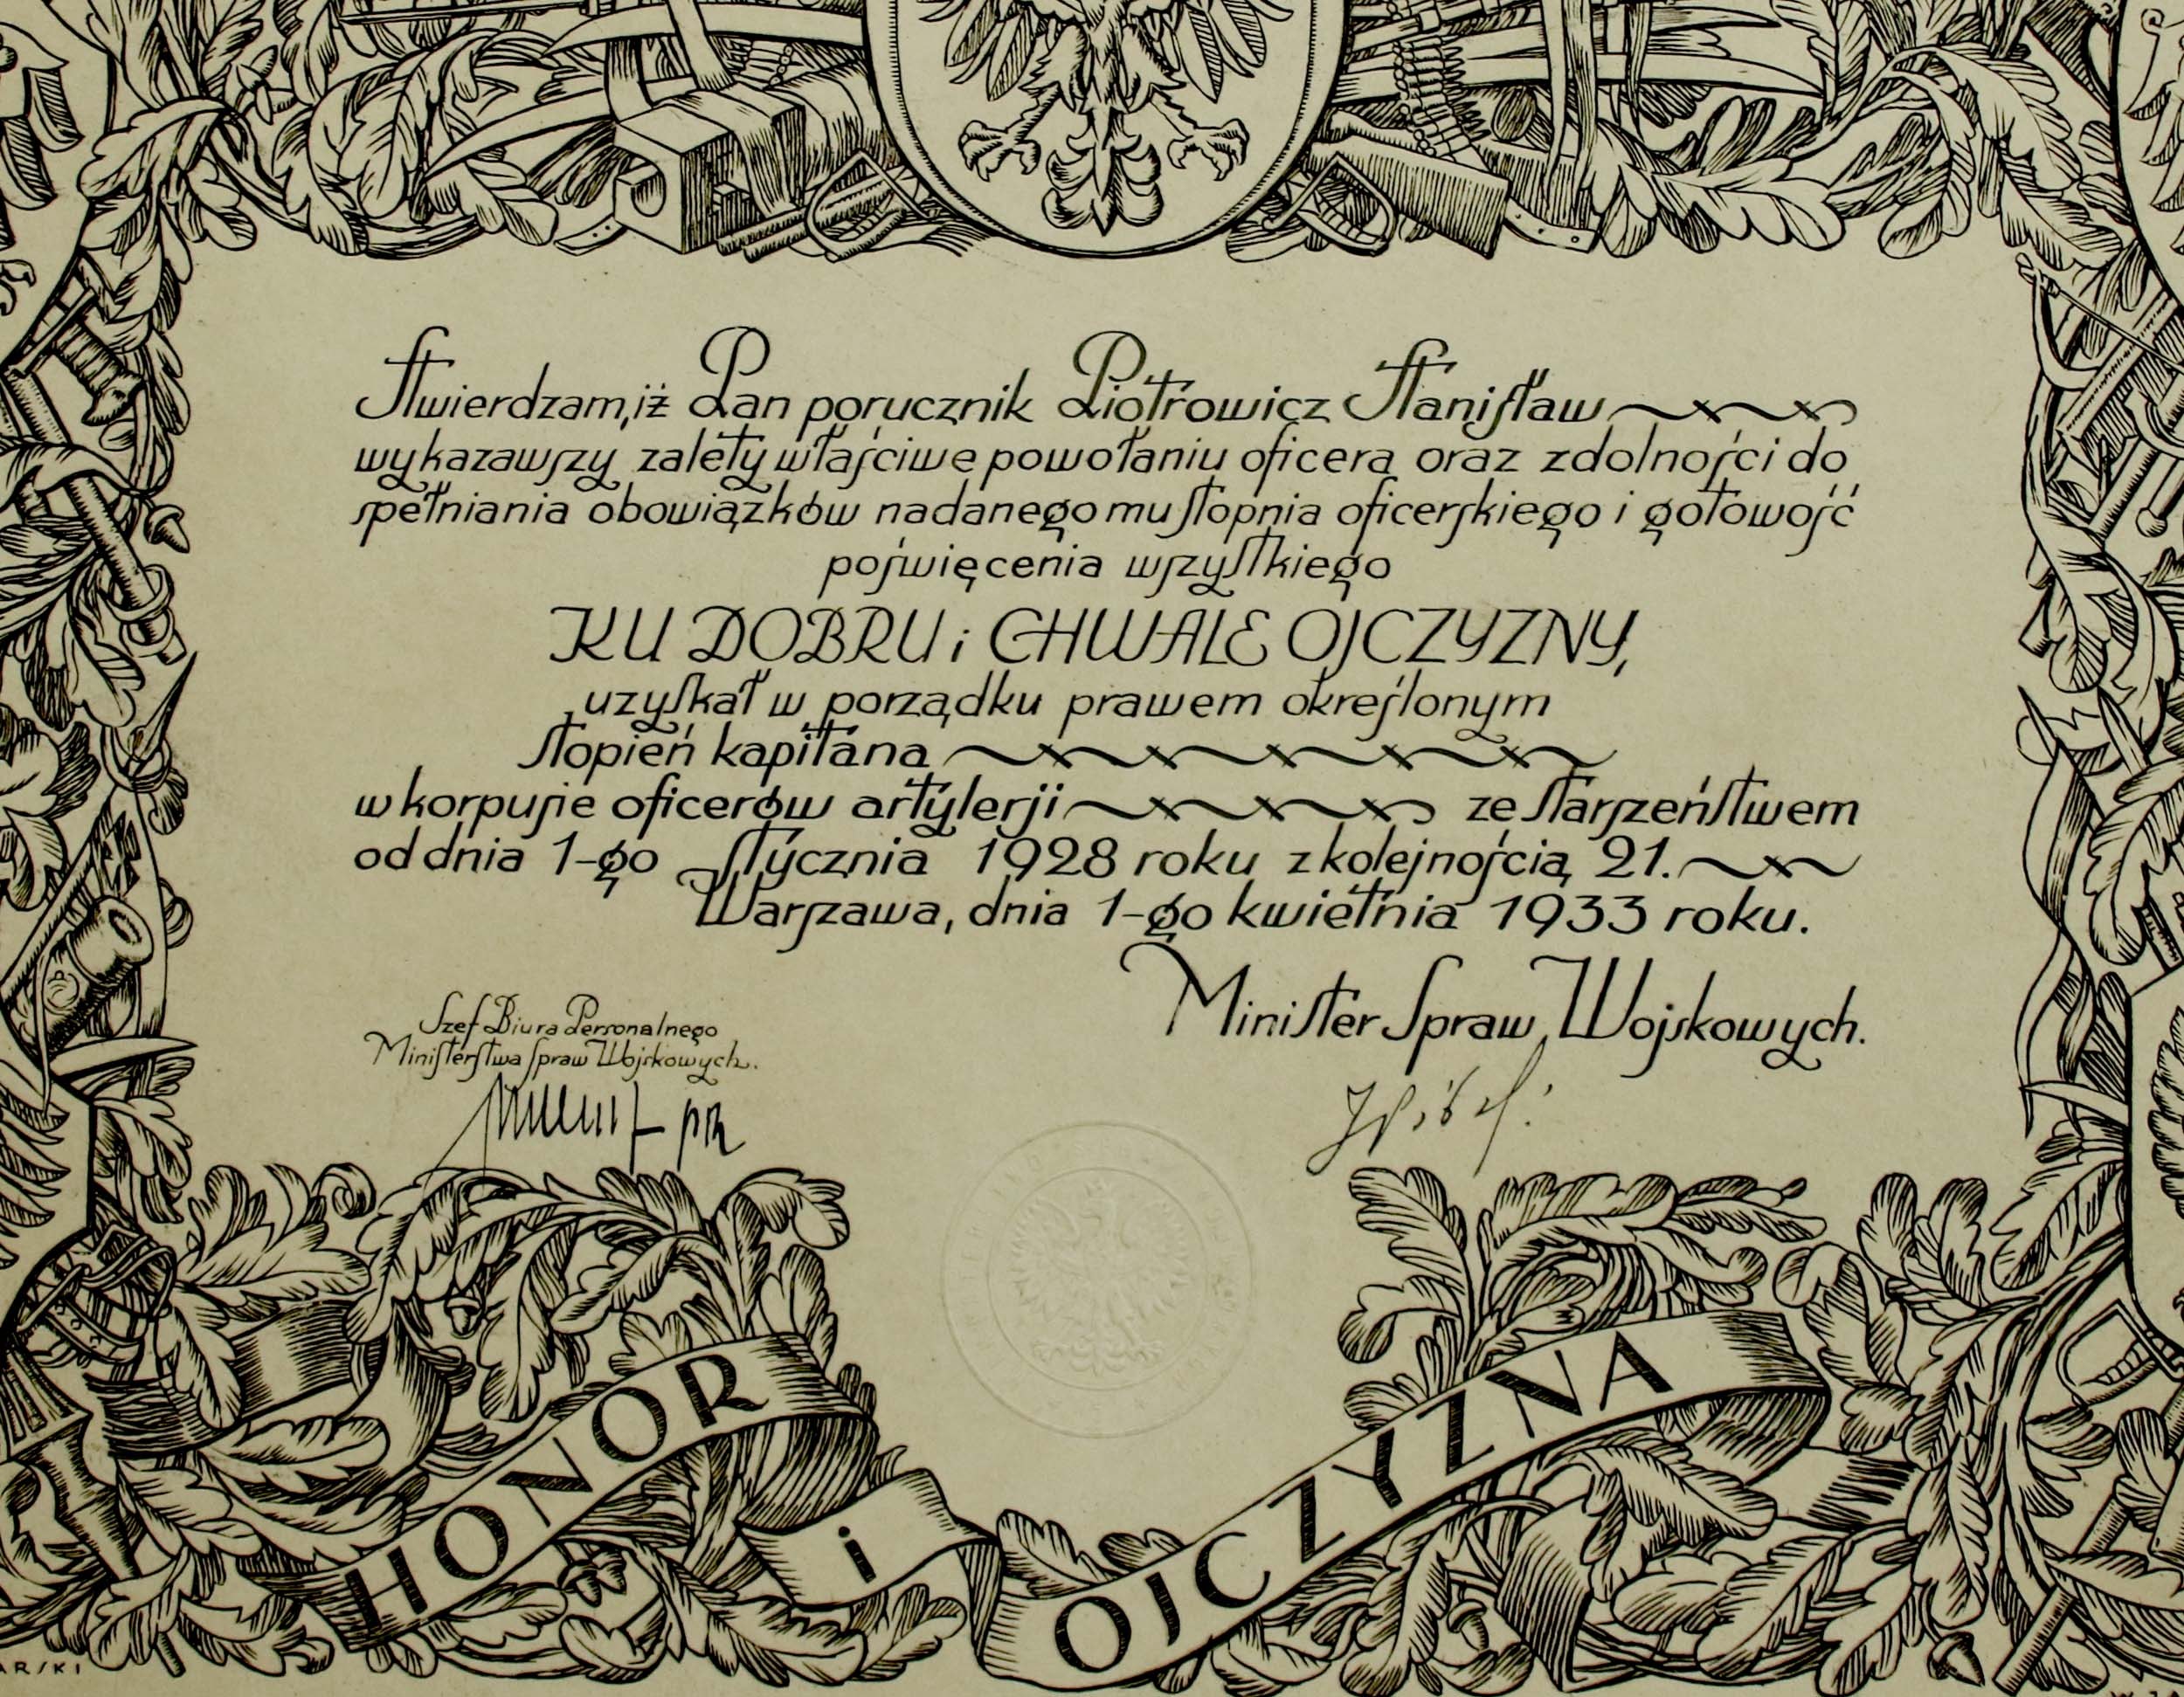 Stwierdzam, iż Pan porucznik Piotrowicz Stanisław
wykazawszy zalety właściwe powołaniu oficera oraz zdolności do
spełniania obowiązków nadanego mu stopnia oficerskiego i gotowość
poświęcenia wszystkiego
KU DOBRU i CHWALE OJCZYZNY,
uzyskał w porządku prawem określonym
stopień kapitana
w korpusie oficerów artylerji ze starszeństwem
od dnia 1-go stycznia 1928 roku z kolejnością 21.
Warszawa, dnia 1-go kwietnia 1933 roku.
Minister Spraw Wojskowych.
Szef Biura Personalnego
Ministerstwa Spraw Wojskowych.
HONOR i OJCZYZNA
ARSKI